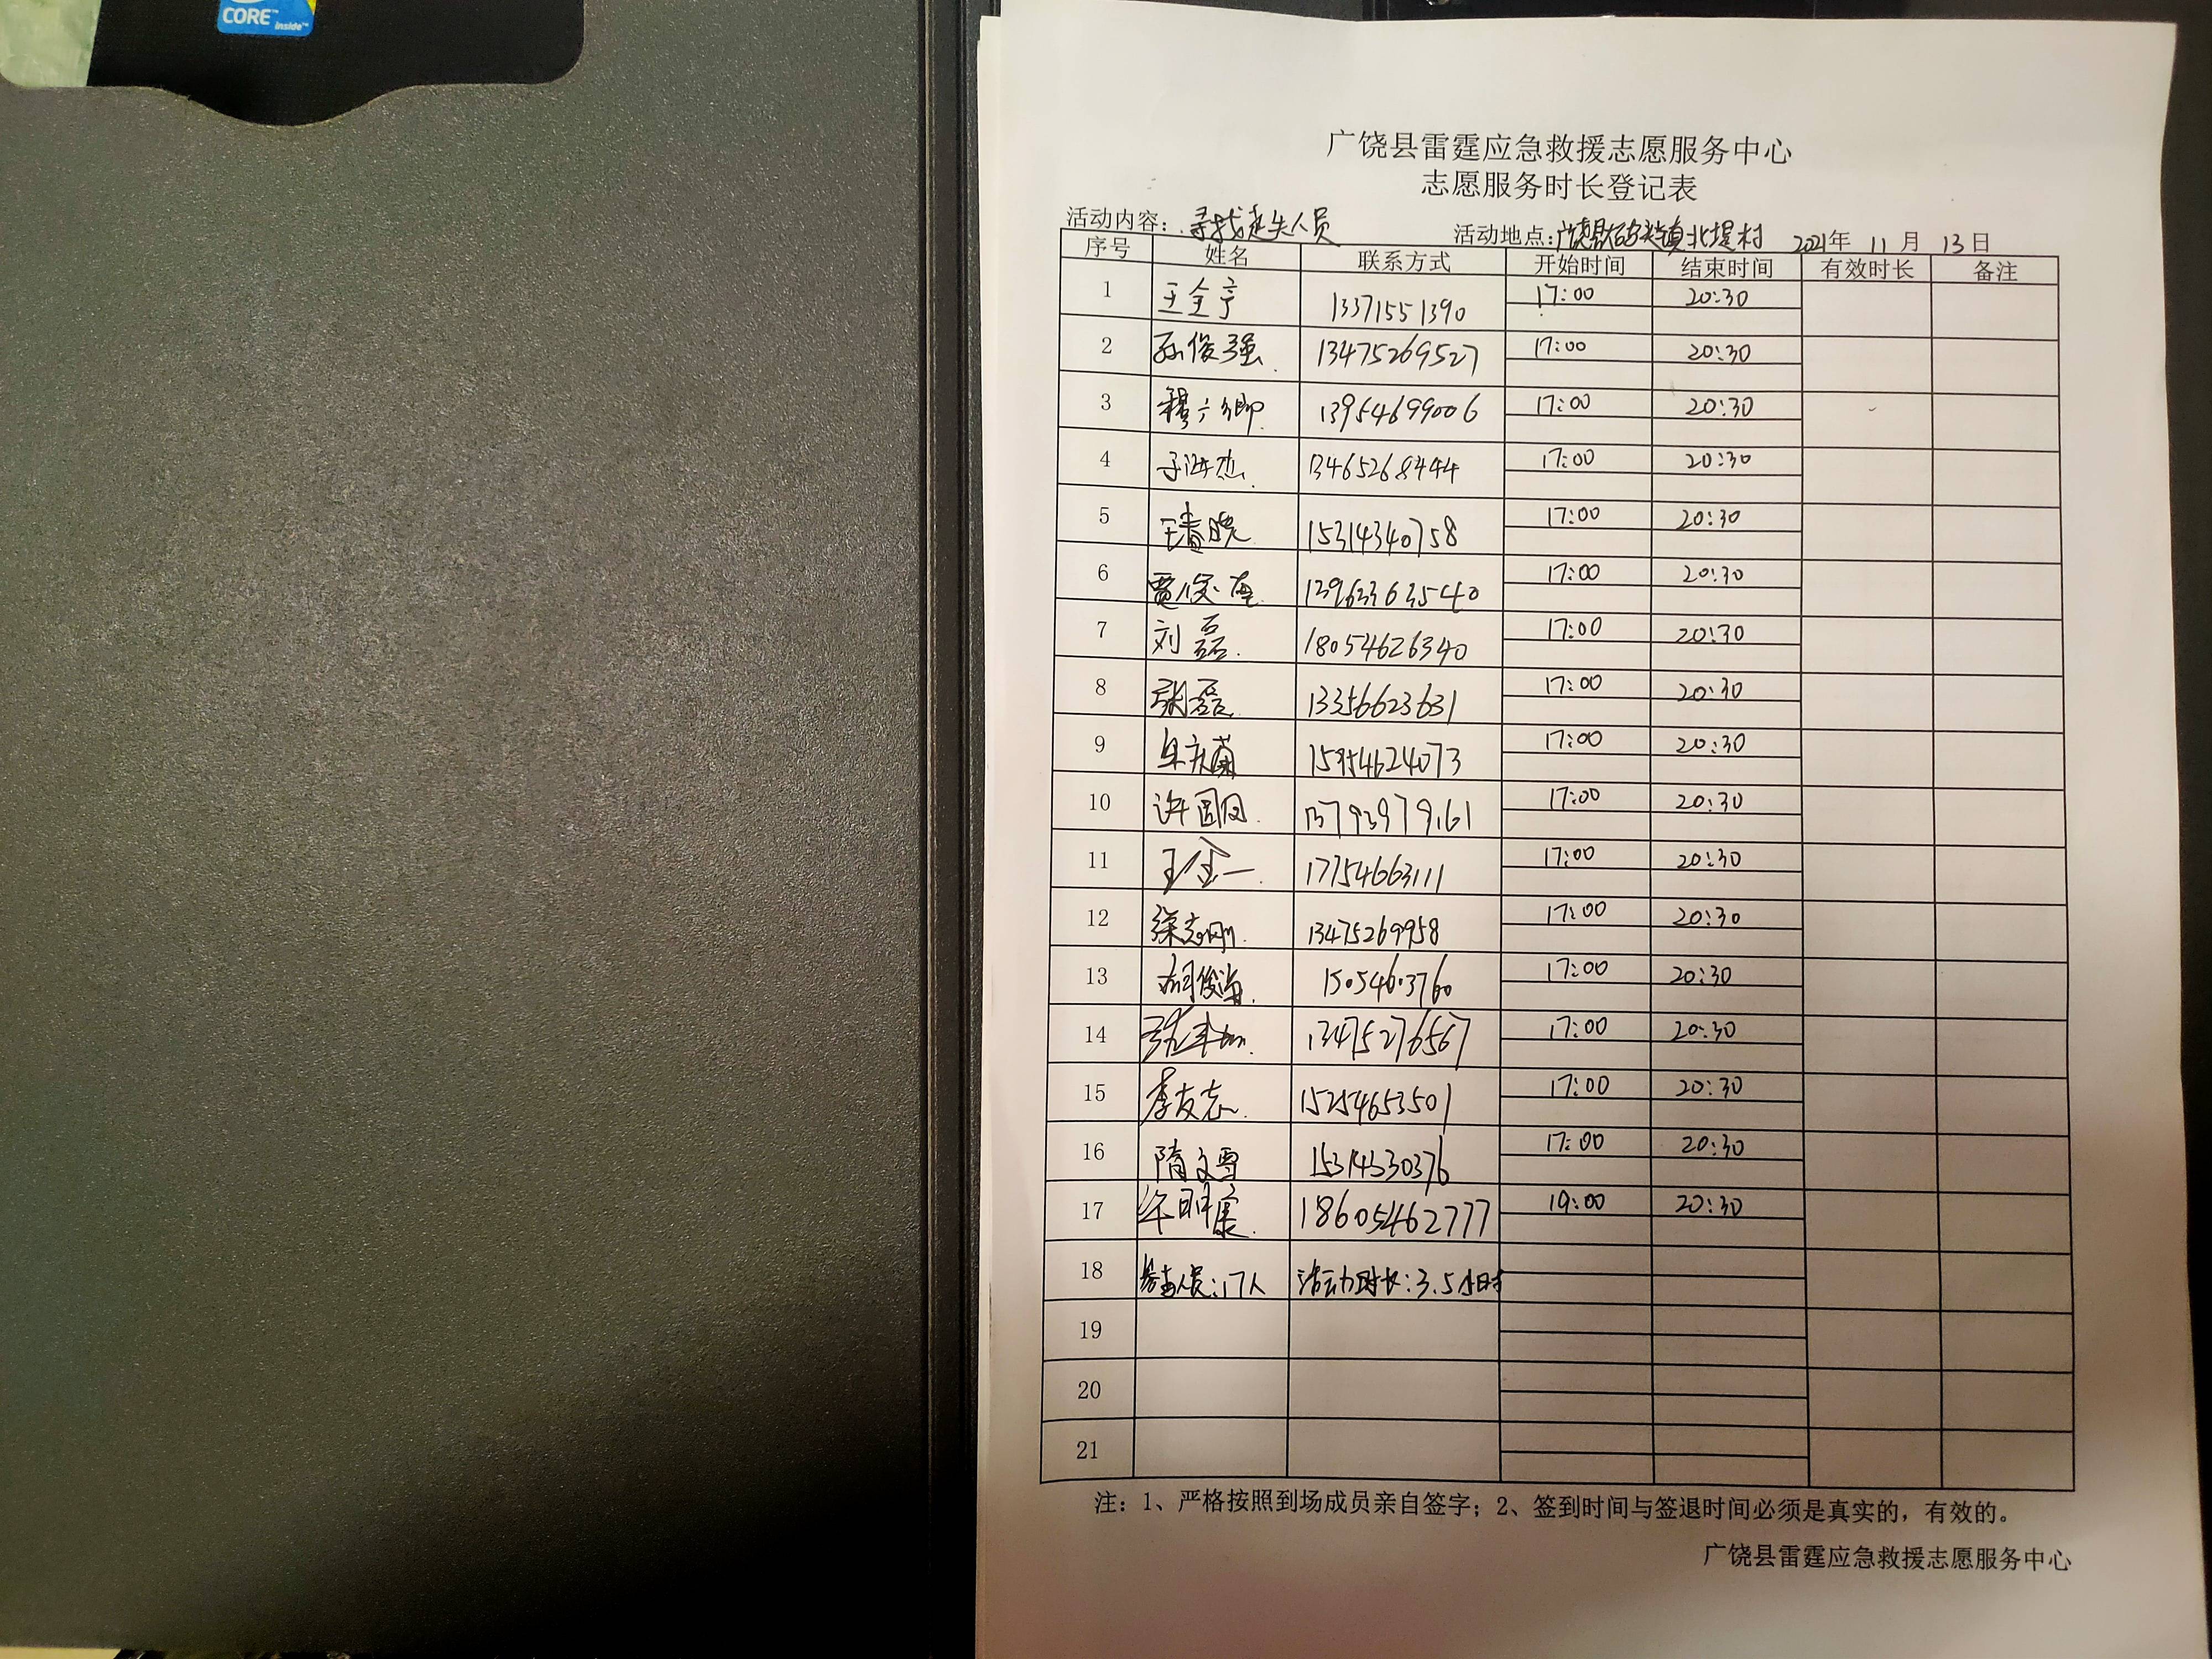 CORE
inside
广饶县雷霆应急救援志愿服务中心
志愿服务时长登记表
活动内容：寻找走失人员 活动地点：广饶县大码头镇北堤村 2021年 11月 13日
序号 姓名 联系方式 开始时间 结束时间 有效时长 备注
1 王全亨 13371551390 17:00 20:30
2 孙俊强 13475269527 17:00 20:30
3 13954699006 17:00 20:30
4 13465268444 17:00 20:30
5 王春晓 15314340758 17:00 20:30
6 13963363540 17:00 20:30
7 刘磊 18054626340 17:00 20:30
8 张磊 13356623631 17:00 20:30
9 15954624073 17:00 20:30
10 许国风 13793979161 17:00 20:30
11 王金一 17754663111 17:00 20:30
12 徐志刚 13475269958 17:00 20:30
13 胡俊海 15054603760 17:00 20:30
14 13475276567 17:00 20:30
15 李友志 15254653501 17:00 20:30
16 隋文尊 15314330376 17:00 20:30
17 18605462777 19:00 20:30
18 参与人员：17人 活动时长：3.5小时
19
20
21
注：1、严格按照到场成员亲自签字；2、签到时间与签退时间必须是真实的，有效的。
广饶县雷霆应急救援志愿服务中心